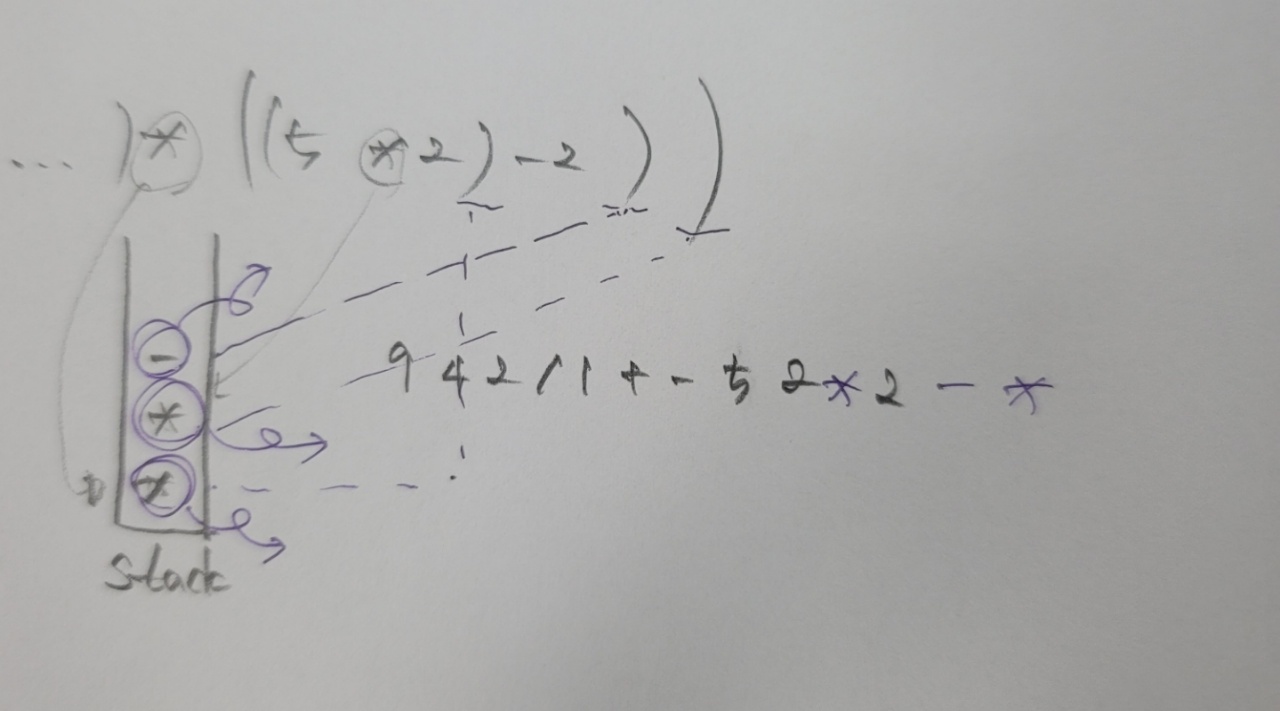 ... ) * ((5 * 2) - 2 ) )
-
*
9 4 2 / 1 + - 5 2 * 2 - *
*
Stack